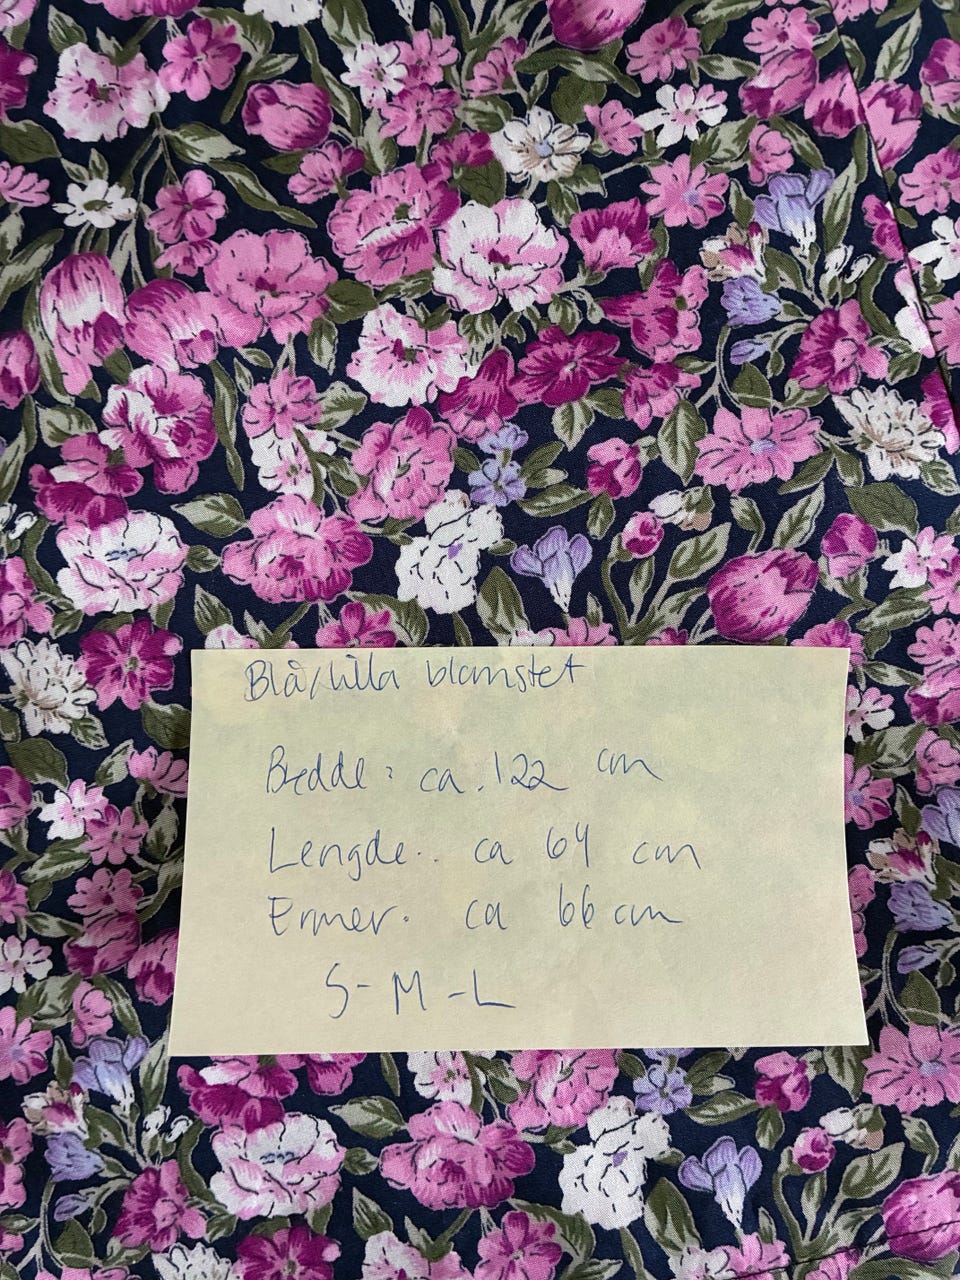 Blå/lilla blomstet
Bredde: ca. 122 cm
Lengde: ca 64 cm
Ermer: ca 66 cm
S-M-L